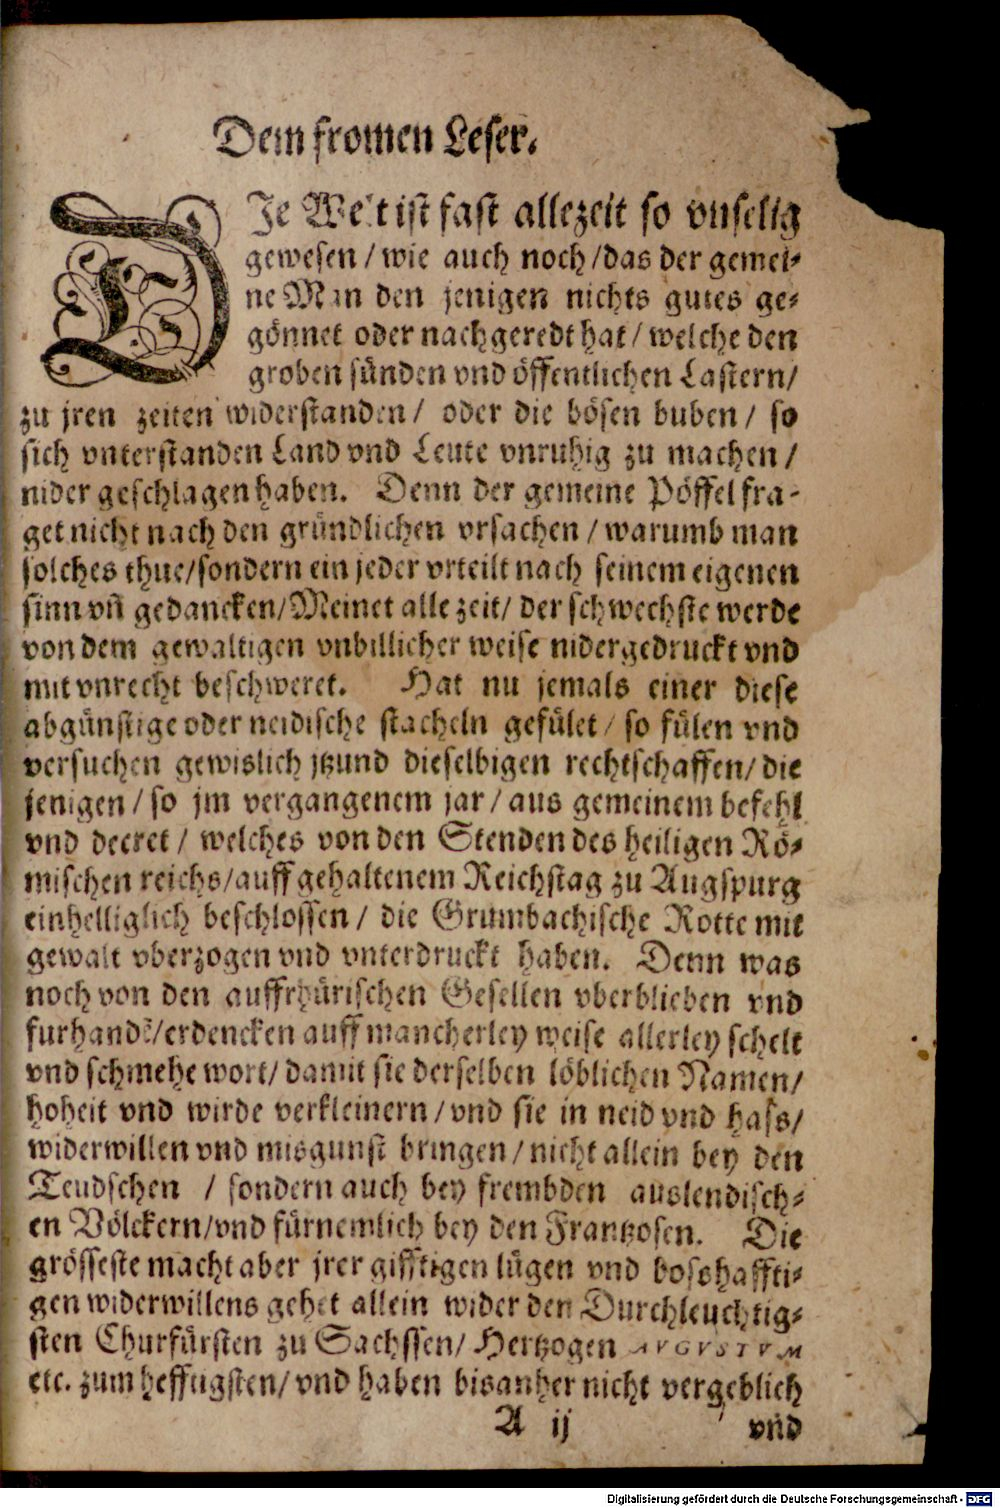 Dem fromen Leser.
DJe Welt ist fast allezeit so vnselig
gewesen / wie auch noch / das der gemei-
ne Man den jenigen nichts gutes ge-
gönnet oder nachgeredt hat / welche den
groben sünden vnd öffentlichen Lastern /
zu jren zeiten widerstanden / oder die bösen buben / so
sich vnterstanden Land vnd Leute vnruhig zu machen /
nider geschlagen haben. Denn der gemeine Pöffel fra-
get nicht nach den gründlichen vrsachen / warumb man
solches thue / sondern ein jeder vrteilt nach seinem eigenen
sinn vñ gedancken / Meinet alle zeit / der schwechste werde
von dem gewaltigen vnbillicher weise nidergedruckt vnd
mit vnrecht beschweret. Hat nu jemals einer diese
abgünstige oder neidische stacheln gefület / so fülen vnd
versuchen gewislich jtzund dieselbigen rechtschaffen / die
jenigen / so jm vergangenem jar / aus gemeinem befehl
vnd decret / welches von den Stenden des heiligen Rö-
mischen reichs / auff gehaltenem Reichstag zu Augspurg
einhelliglich beschlossen / die Grumbachische Rotte mit
gewalt vberzogen vnd vnterdruckt haben. Denn was
noch von den auffrhürischen Gesellen vberblieben vnd
furhandē / erdencken auff mancherley weise allerley schelt
vnd schmehe wort / damit sie derselben löblichen Namen /
hoheit vnd wirde verkleinern / vnd sie in neid vnd hass /
widerwillen vnd misgunst bringen / nicht allein bey den
Teudschen / sondern auch bey frembden auslendisch-
en Völckern / vnd fürnemlich bey den Frantzosen. Die
grösseste macht aber jrer gifftigen lügen vnd boshaffti-
gen widerwillens gehet allein wider den Durchleuchtig-
sten Churfürsten zu Sachssen / Hertzogen AVGVSTVM
etc. zum hefftigsten / vnd haben bisanher nicht vergeblich
A ij vnd
Digitalisierung gefördert durch die Deutsche Forschungsgemeinschaft - DFG